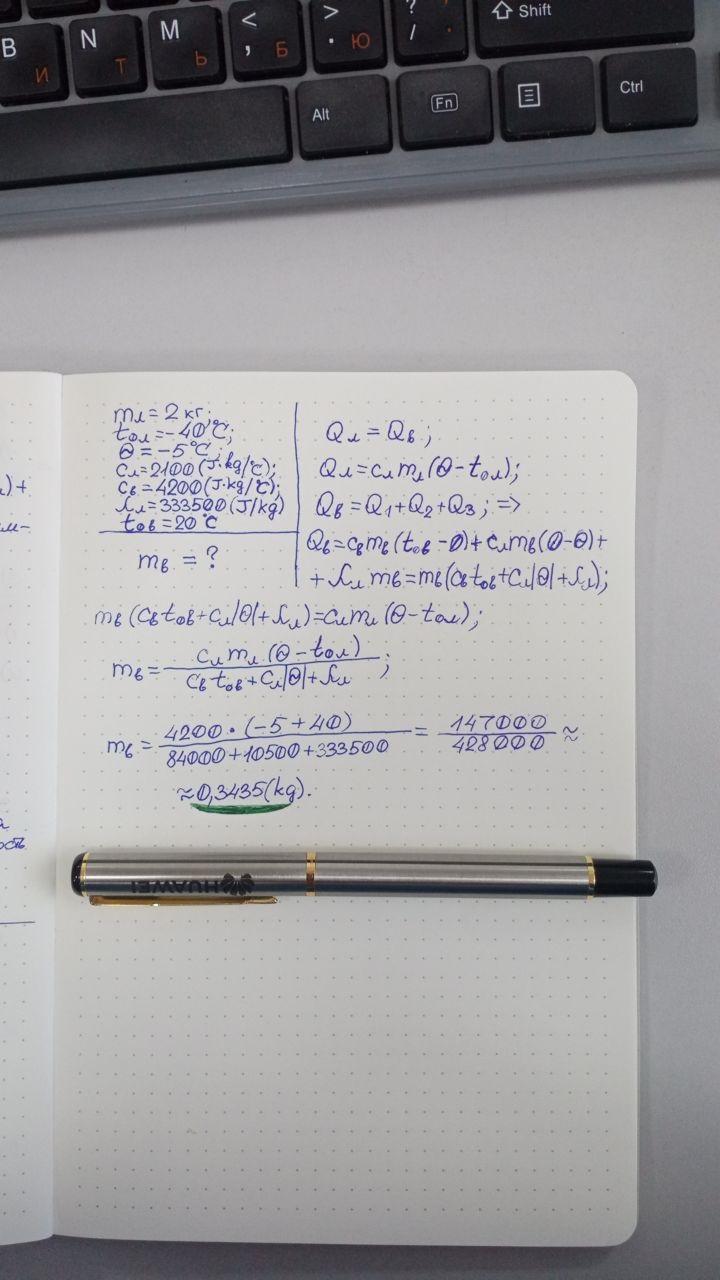 B И
N Т
M Ь
< , Б
> . Ю
? / .
Shift
Alt
Fn
Ctrl
mл = 2 кг;
tол = -40°C;
θ = -5°C;
cл = 2100 (J·kg/°C);
cв = 4200 (J·kg/°C);
λл = 333500 (J/kg)
tов = 20°C
mв = ?
Qл = Qв;
Qл = cлmл(θ - tол);
Qв = Q1 + Q2 + Q3; =>
Qв = cвmв(tов - 0) + cлmв(0 - θ) +
+ λл mв = mв(cвtов + cл|θ| + λл);
mв (cвtов + cл|θ| + λл) = cлmл (θ - tол);
mв = cл mл (θ - tол) / cв tов + cл|θ| + λл ;
mв = 4200 · (-5 + 40) / 84000 + 10500 + 333500 = 147000 / 428000 ≈
≈ 0,3435 (kg).
HUAWEI
л) +
ость